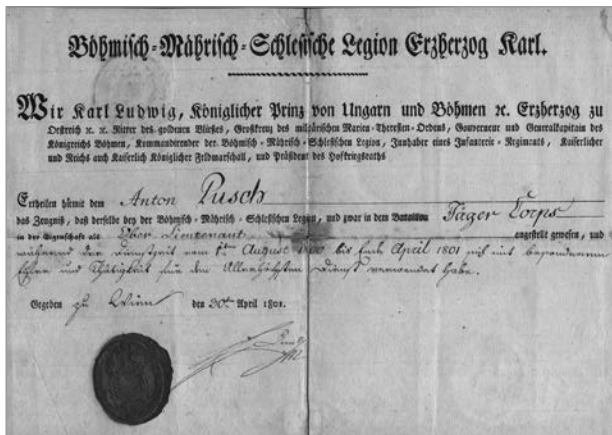 Böhmisch-Mährisch-Schlesische Legion Erzherzog Karl.
Wir Karl Ludwig, Königlicher Prinz von Ungarn und Böhmen ꝛc. Erzherzog zu
Oestreich ꝛc. ꝛc. Ritter des goldenen Vließes, Großkreuz des militärischen Marien-Theresien-Ordens, Gouverneur und Generalkapitain des
Königreichs Böhmen, Kommandirender der Böhmisch-Mährisch-Schlesischen Legion, Innhaber eines Infanterie-Regiments, Kaiserlicher
und Reichs auch Kaiserlich Königlicher Feldmarschall, und Präsident des Hofkriegsraths
Ertheilen hiermit dem Anton Pusch
das Zeugniß, daß derselbe bey der Böhmisch-Mährisch-Schlesischen Legion, und zwar in dem Bataillon Jäger Corps
in der Eigenschaft als Ober Lieutenant angestellt gewesen, und
während der Dienstzeit vom 1ten August 1800 bis Ende April 1801 sich mit besonderem
Eifer und Thätigkeit für den Allerhöchsten Dienst verwendet habe.
Gegeben zu Wien den 30t April 1801.